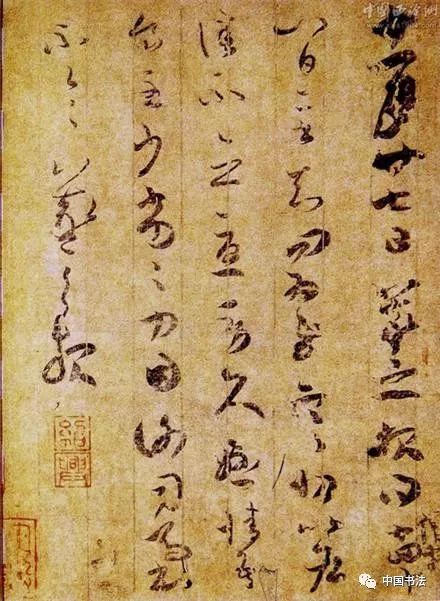 中国西泠网
十一月廿七日羲之報得十四
十八日二書知問為慰寒切比各
佳不念憂勞久懸情吾
食至少劣劣力因謝司馬書
不一一羲之報
紹興
中国书法